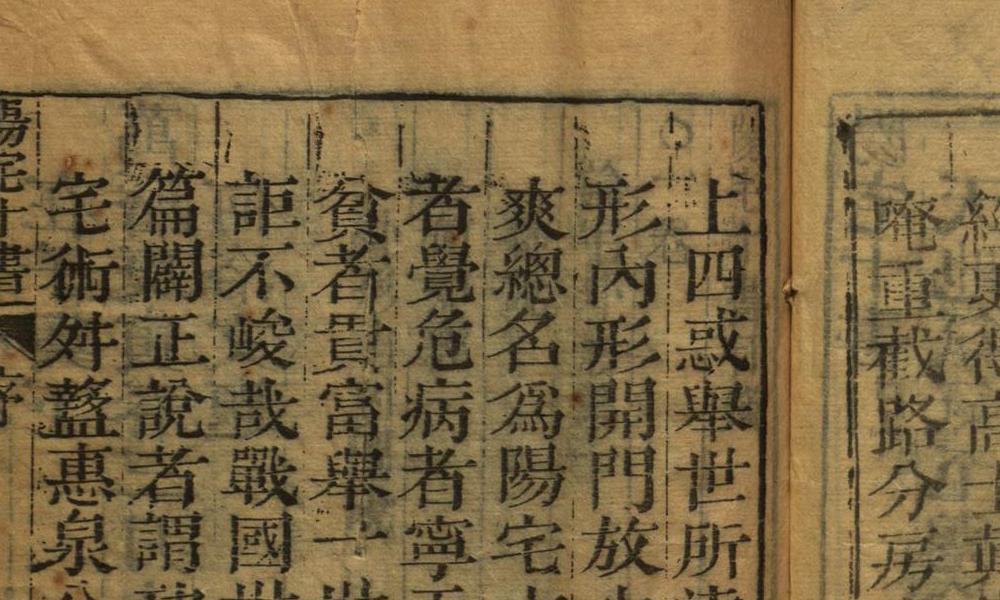 重截路分房
上四惑舉世所
形內形開門放
爽總名爲陽宅
者覺危病者寧
貧者貴富舉一世
詎不峻哉戰國世
篇闢正說者謂
宅術舛盭惠泉
陽宅十書 序